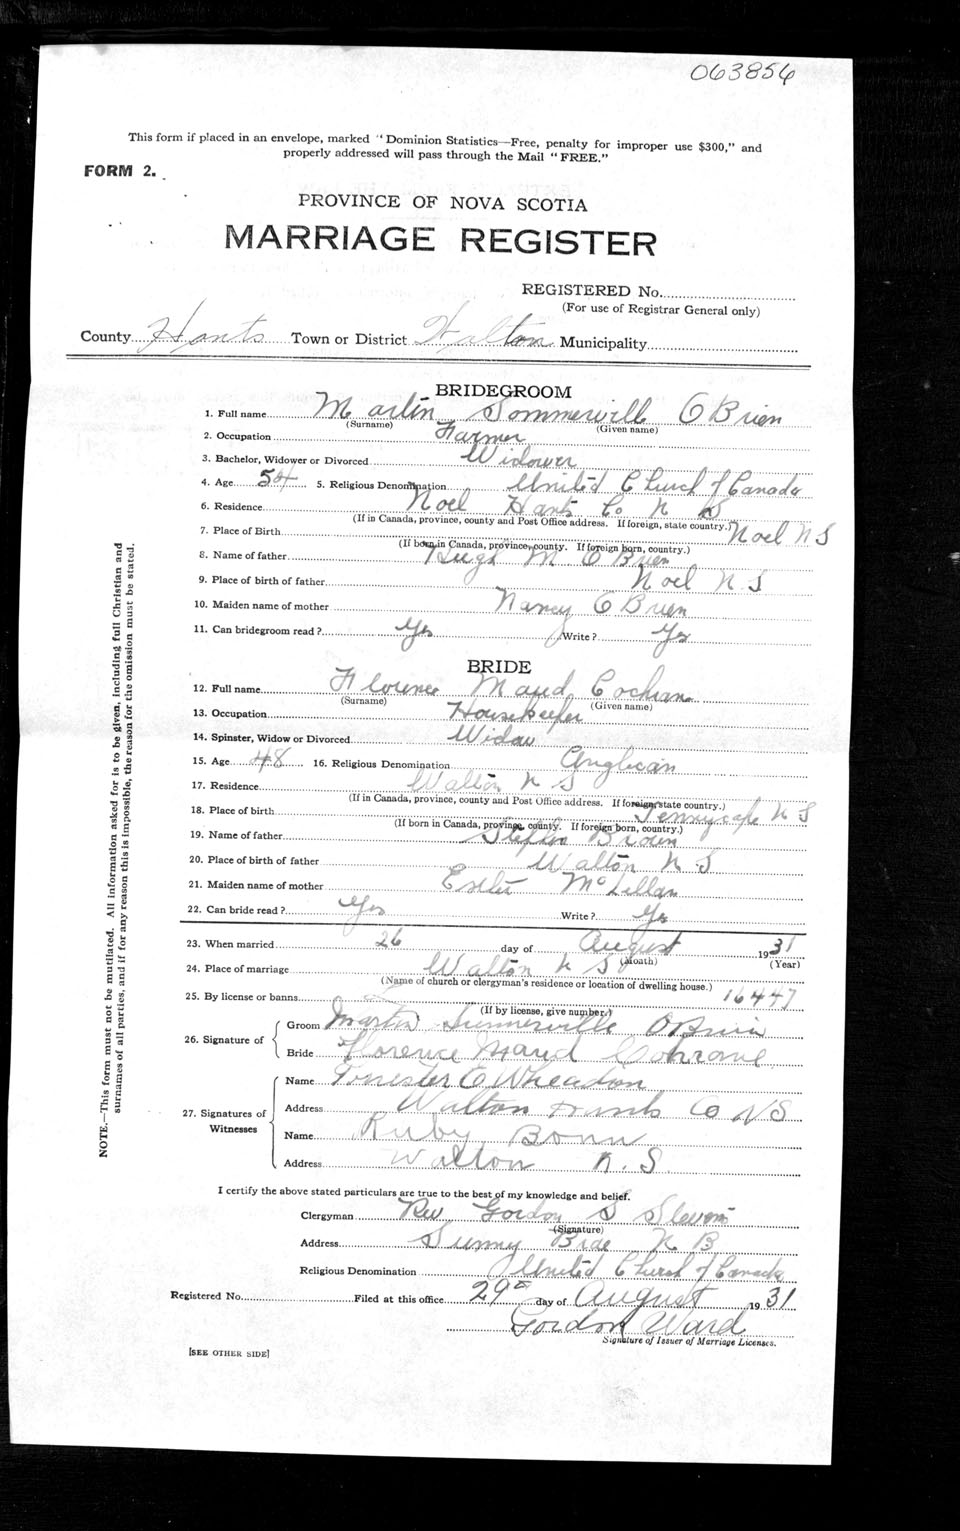 063856
This form if placed in an envelope, marked "Dominion Statistics—Free, penalty for improper use $300," and
properly addressed will pass through the Mail "FREE."
FORM 2.
PROVINCE OF NOVA SCOTIA
MARRIAGE REGISTER
REGISTERED No.
(For use of Registrar General only)
County Hants Town or District Walton Municipality
BRIDEGROOM
1. Full name Martin Sommerville O Brien
(Surname) (Given name)
2. Occupation Farmer
3. Bachelor, Widower or Divorced Widower
4. Age 54 5. Religious Denomination United Church of Canada
6. Residence Noel Hants Co N S
(If in Canada, province, county and Post Office address. If foreign, state country.)
7. Place of Birth Noel N S
(If born in Canada, province, county. If foreign born, country.)
8. Name of father Hugh M O Brien
9. Place of birth of father Noel N.S
10. Maiden name of mother Nancy O Brien
11. Can bridegroom read? Yes Write? Yes
BRIDE
12. Full name Florence Maud Cochran
(Surname) (Given name)
13. Occupation Housekeeper
14. Spinster, Widow or Divorced Widow
15. Age 48 16. Religious Denomination Anglican
17. Residence Walton N S
(If in Canada, province, county and Post Office address. If foreign, state country.)
18. Place of birth Tennycape N S
(If born in Canada, province, county. If foreign born, country.)
19. Name of father Stephen Brown
20. Place of birth of father Walton N S
21. Maiden name of mother Esther McLellan
22. Can bride read? Yes Write? Yes
23. When married 26 day of August 1931
(Month) (Year)
24. Place of marriage Walton N S
(Name of church or clergyman's residence or location of dwelling house.)
25. By license or banns 16447
(If by license, give number.)
26. Signature of
Groom Martin Summerville OBrien
Bride Florence Maud Cohrane
27. Signatures of Witnesses
Name Forrester E Wheadon
Address Walton Hants Co NS
Name Ruby Bonn
Address Walton N.S.
I certify the above stated particulars are true to the best of my knowledge and belief.
Clergyman Rev Gordon S Stevens
(Signature)
Address Sunny Brae N B
Religious Denomination United Church of Canada
Registered No. Filed at this office 29th day of August 1931
Gordon Ward
Signature of Issuer of Marriage Licenses.
[SEE OTHER SIDE]
NOTE.—This form must not be mutilated. All information asked for is to be given, including full Christian and
surnames of all parties, and if for any reason this is impossible, the reason for the omission must be stated.